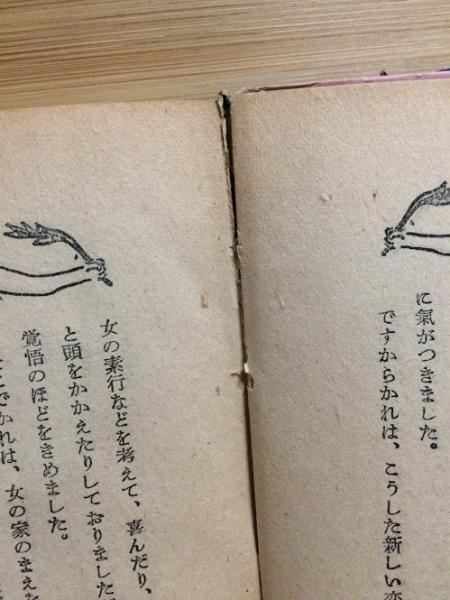 に氣がつきました。
ですからかれは、こうした新しい恋
女の素行などを考えて、喜んだり、
と頭をかかえたりしておりました
覚悟のほどをきめました。
でかれは、女の家のまえ